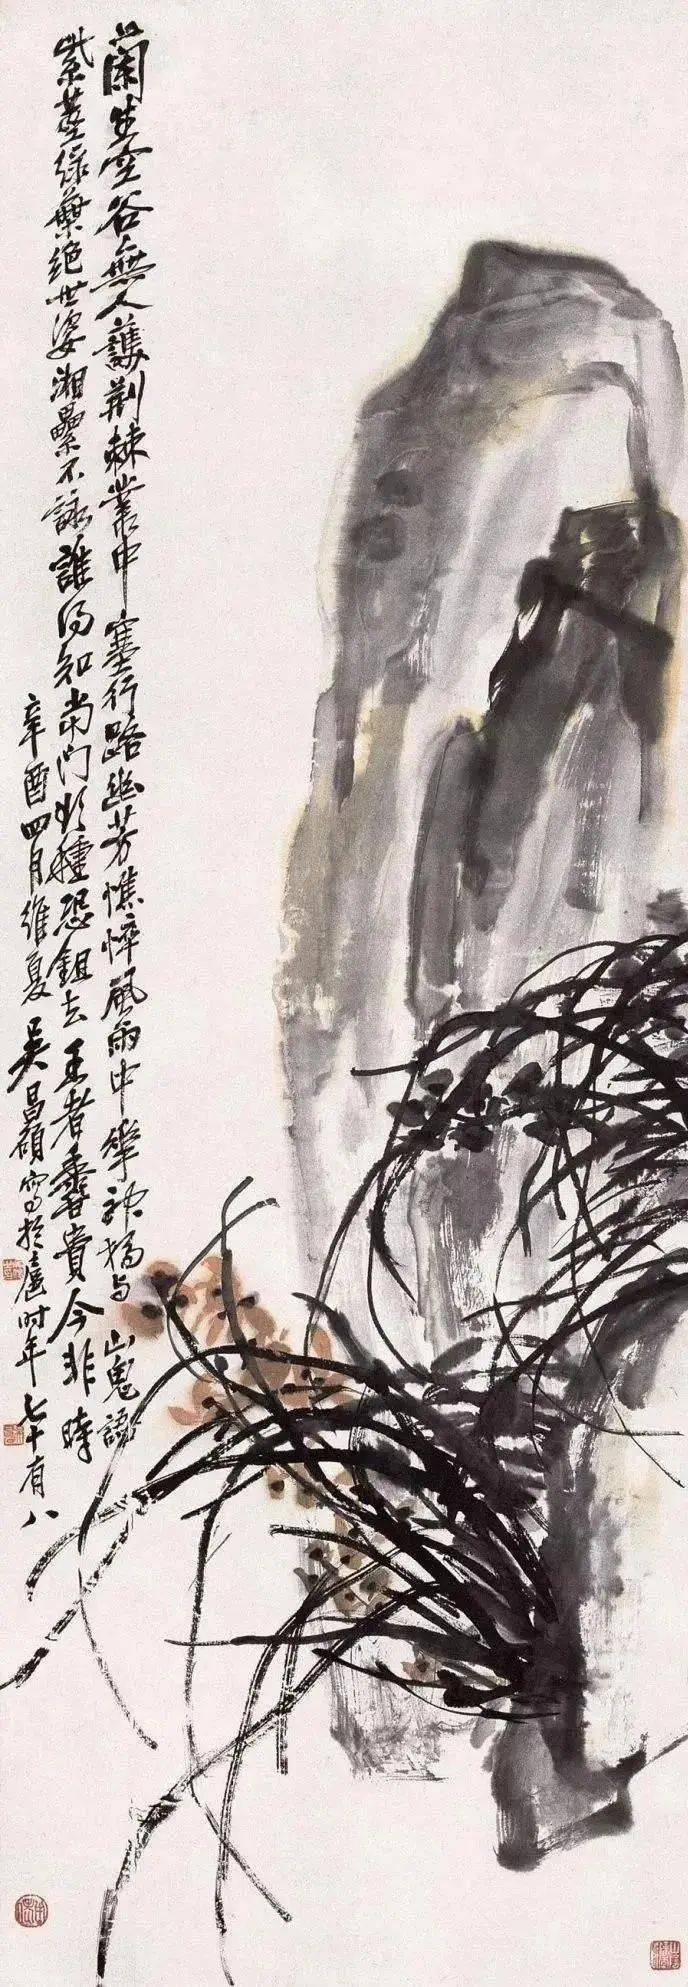 蘭生空谷無人護荆棘叢中塞行路幽芳憔悴風雨中華神猶与山鬼語
紫莖綠葉絕世姿湘纍不詠誰得知當門欲種恐鉏去王者香貴今非時
辛酉四月維夏吳昌碩寫於滬時年七十有八